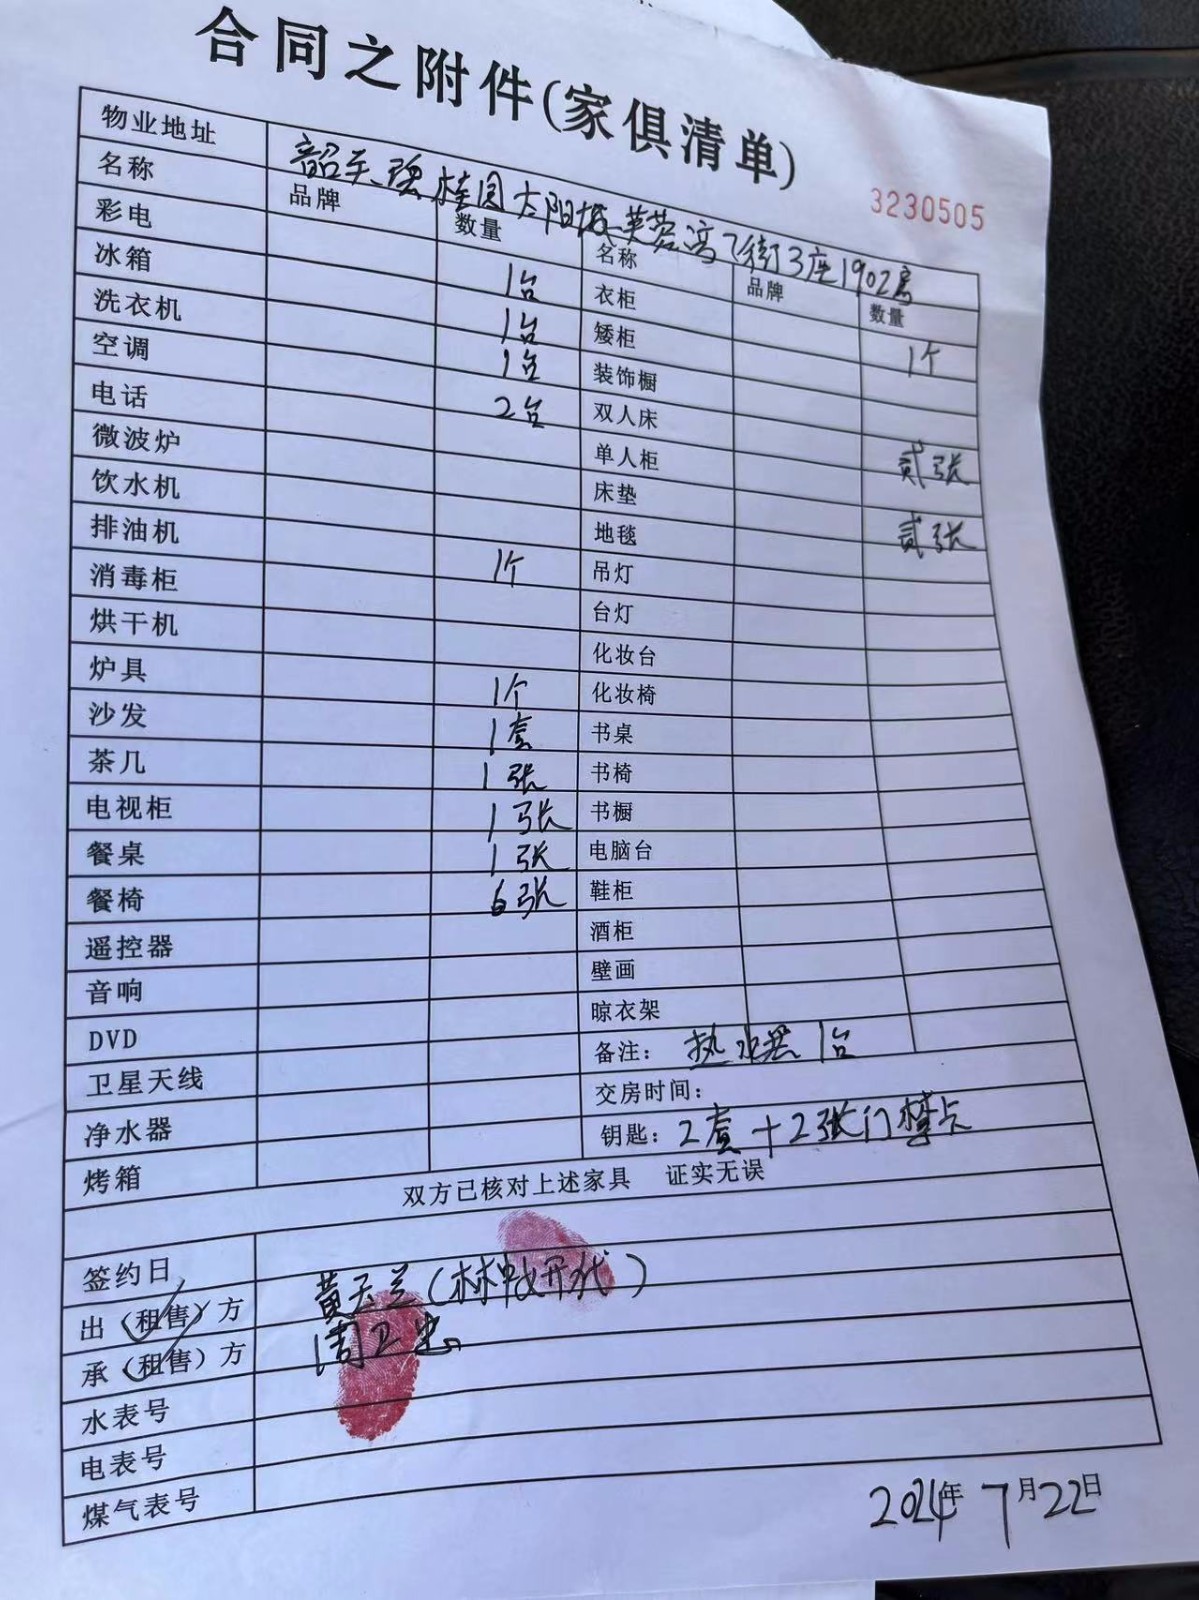 合同之附件(家俱清单)
3230505
物业地址 韶关碧桂园太阳城芙蓉湾7街3座1902房
名称 品牌 数量 名称 品牌 数量
彩电 1台 衣柜 1个
冰箱 1台 矮柜
洗衣机 1台 装饰橱
空调 2台 双人床 贰张
电话 单人柜
微波炉 床垫 贰张
饮水机 地毯
排油机 1个 吊灯
消毒柜 台灯
烘干机 化妆台
炉具 1个 化妆椅
沙发 1套 书桌
茶几 1张 书椅
电视柜 1张 书橱
餐桌 1张 电脑台
餐椅 6张 鞋柜
遥控器 酒柜
音响 壁画
DVD 晾衣架
卫星天线 备注: 热水器1台
净水器 交房时间:
烤箱 钥匙: 2套+2张门禁卡
双方已核对上述家具 证实无误
签约日
出(租售)方 黄玉兰(林 代)
承(租售)方 周卫忠
水表号
电表号
煤气表号
2024年7月22日